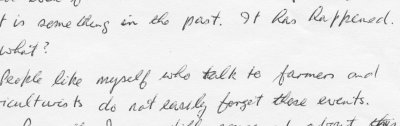 t is something in the past. It has happened.
what?
People like myself who talk to farmers and
iculturists do not easily forget these events.